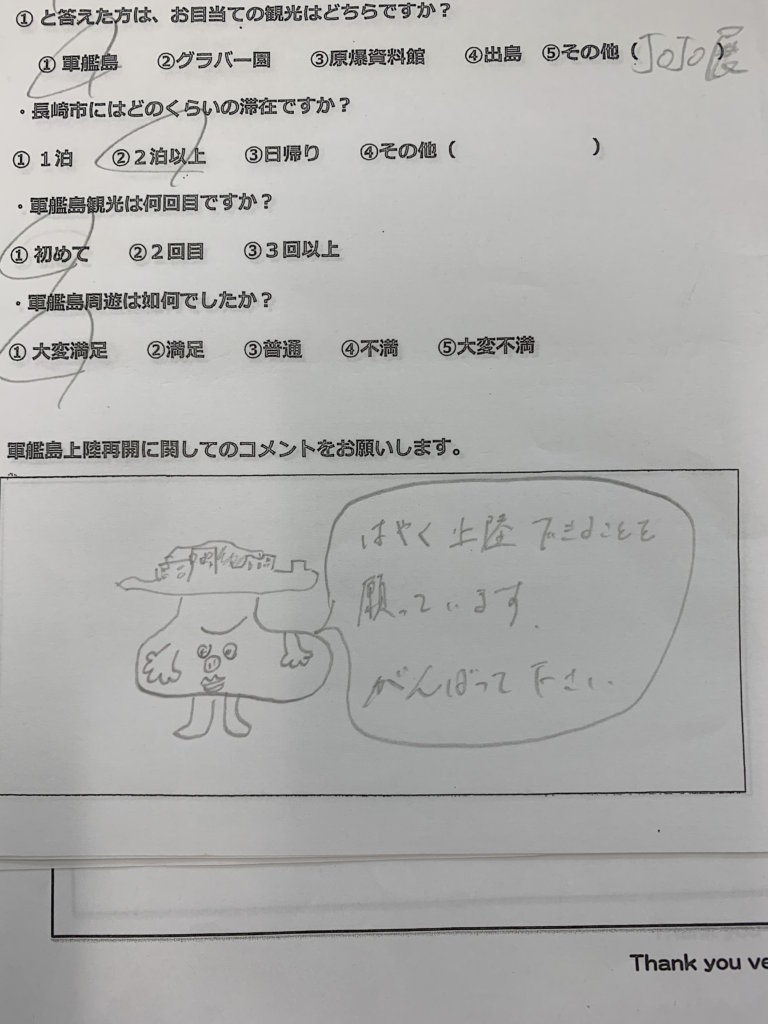 ①と答えた方は、お目当ての観光はどちらですか？
①軍艦島 ②グラバー園 ③原爆資料館 ④出島 ⑤その他（JOJO展）
・長崎市にはどのくらいの滞在ですか？
①１泊 ②２泊以上 ③日帰り ④その他（ ）
・軍艦島観光は何回目ですか？
①初めて ②２回目 ③３回以上
・軍艦島周遊は如何でしたか？
①大変満足 ②満足 ③普通 ④不満 ⑤大変不満
軍艦島上陸再開に関してのコメントをお願いします。
はやく上陸できることを
願っています.
がんばって下さい.
Thank you ve